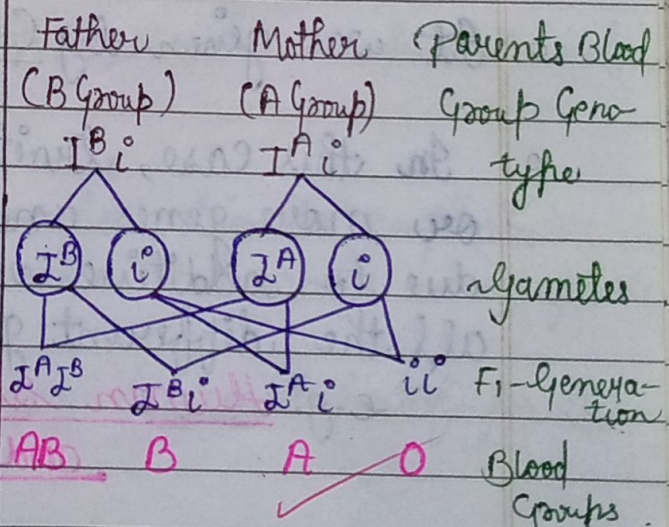 Father Mother Parents Blood
(B Group) (A Group) Group Geno-
I^B i I^A i type
I^B i I^A i Gametes
I^A I^B I^B i I^A i ii F1-Genera-
tion
AB B A O Blood
Groups